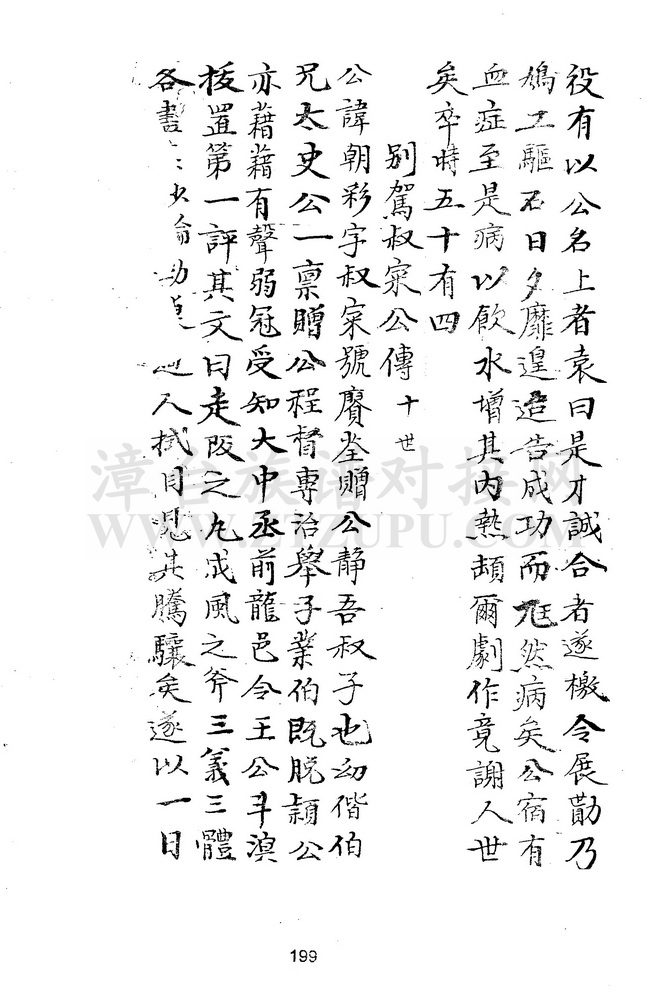 役有以公名上者袁曰是才誠合者遂檄令展勤乃
鳩工驅石日夕靡遑迨告成功而尪然病矣公宿有
血症至是病以飲水增其内熱頓爾劇作竟謝人世
矣卒時五十有四
别駕叔寀公傳十世
公諱朝彩字叔寀號賡荃贈公靜吾叔子也幼偕伯
兄太史公一禀贈公程督專治舉子業伯既脱穎公
亦藉藉有聲弱冠受知大中丞前龍邑令王公斗溟
拔置第一評其文曰走阪之丸成風之斧三義三體
各盡人拭目見其騰驤矣遂以一日
漳台族谱对接网
WWW.ZTZUPU.COM
199